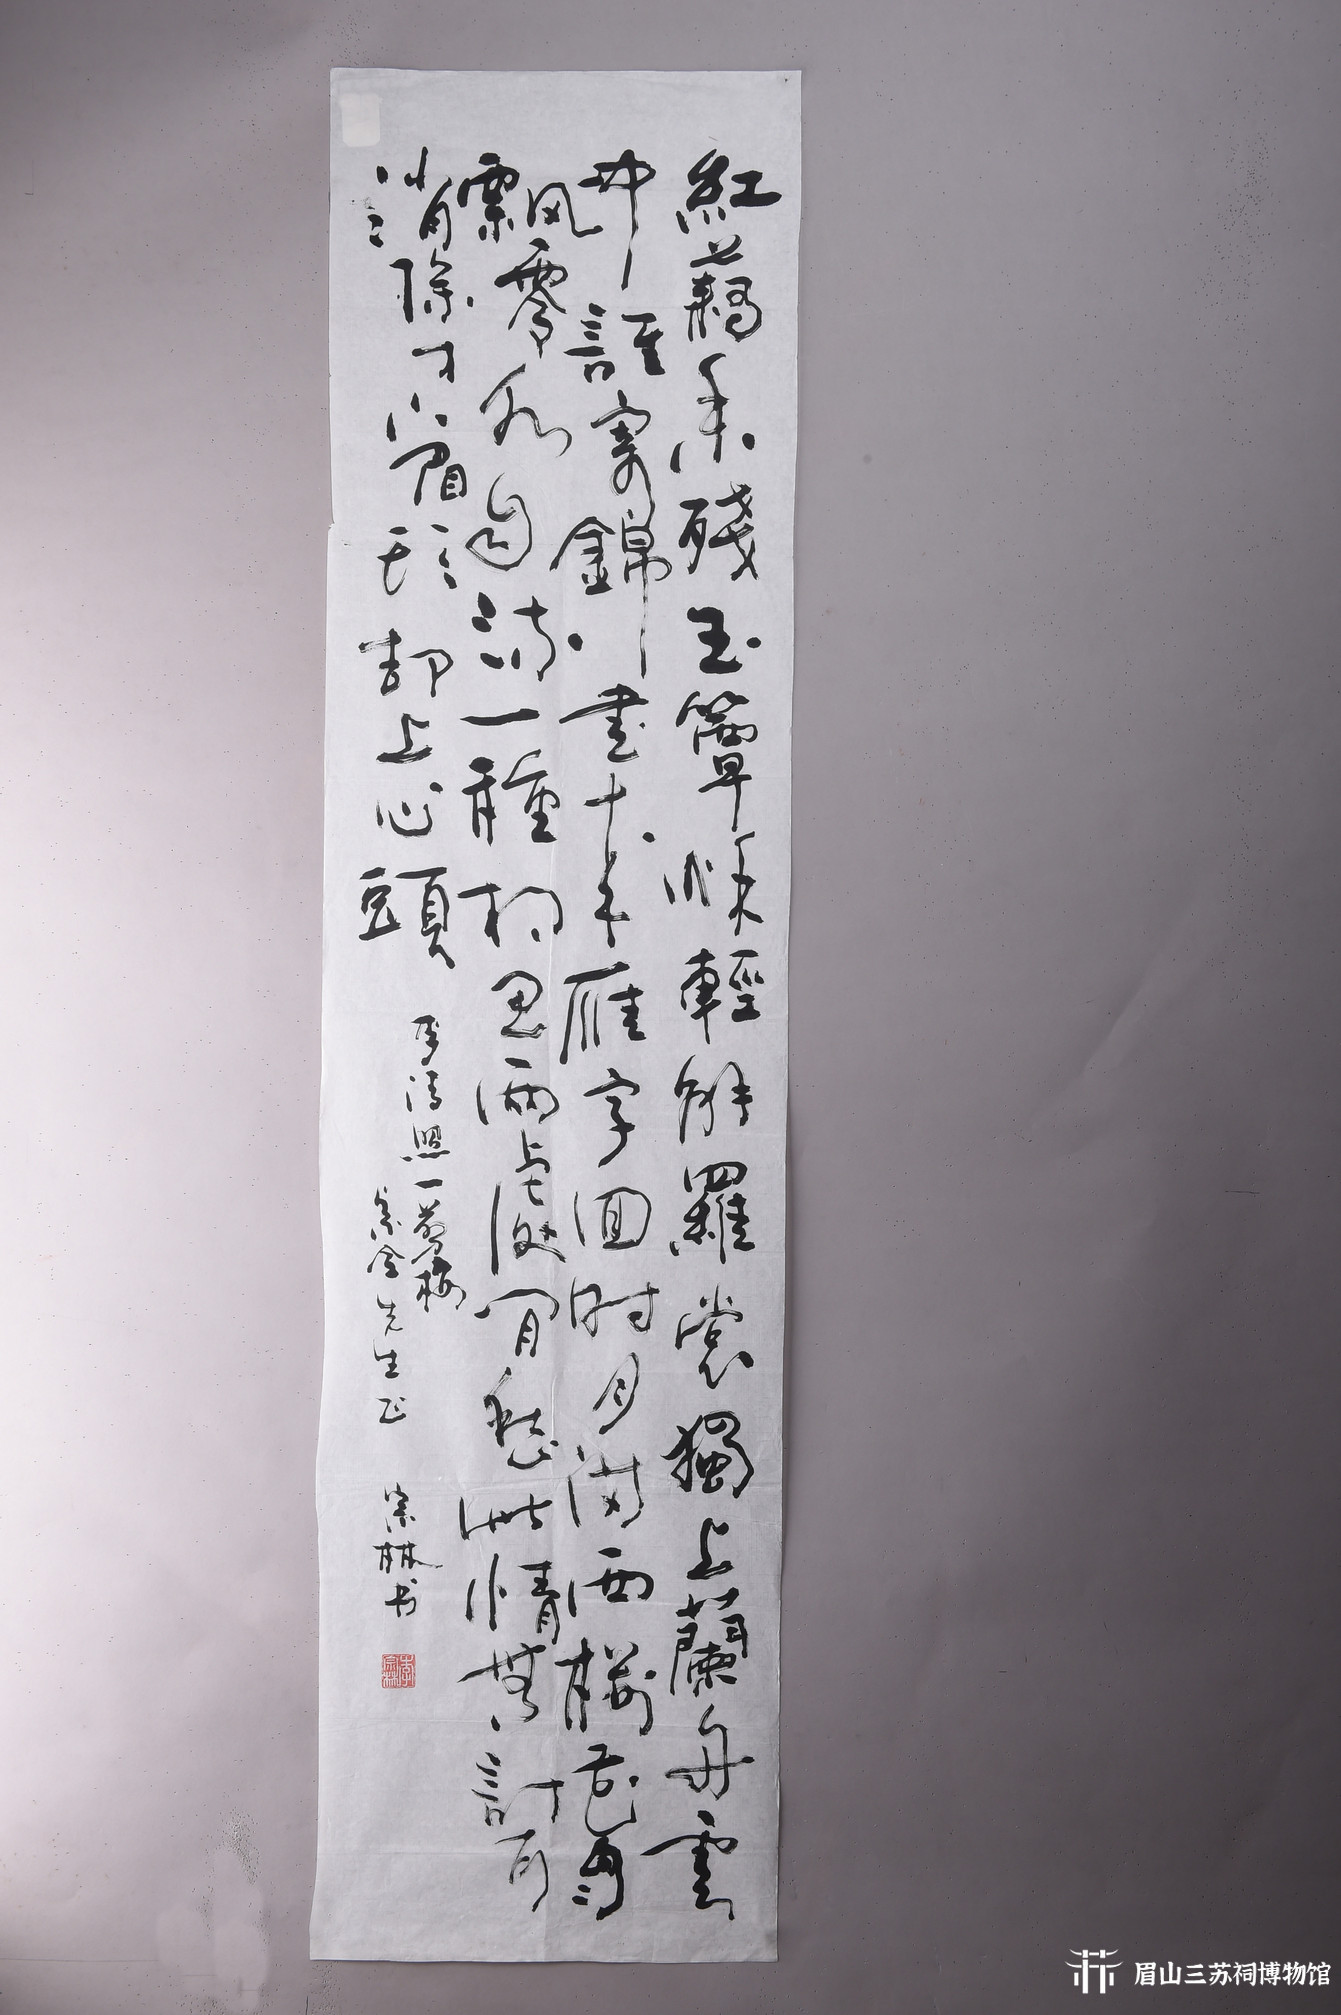 紅藕香殘玉簟秋輕解羅裳獨上蘭舟雲
中誰寄錦書来雁字回时月满西樓花自
飄零水自流一種相思兩處閒愁此情無計可
消除才下眉头却上心頭
李清照一剪梅
先生正
林书
眉山三苏祠博物馆